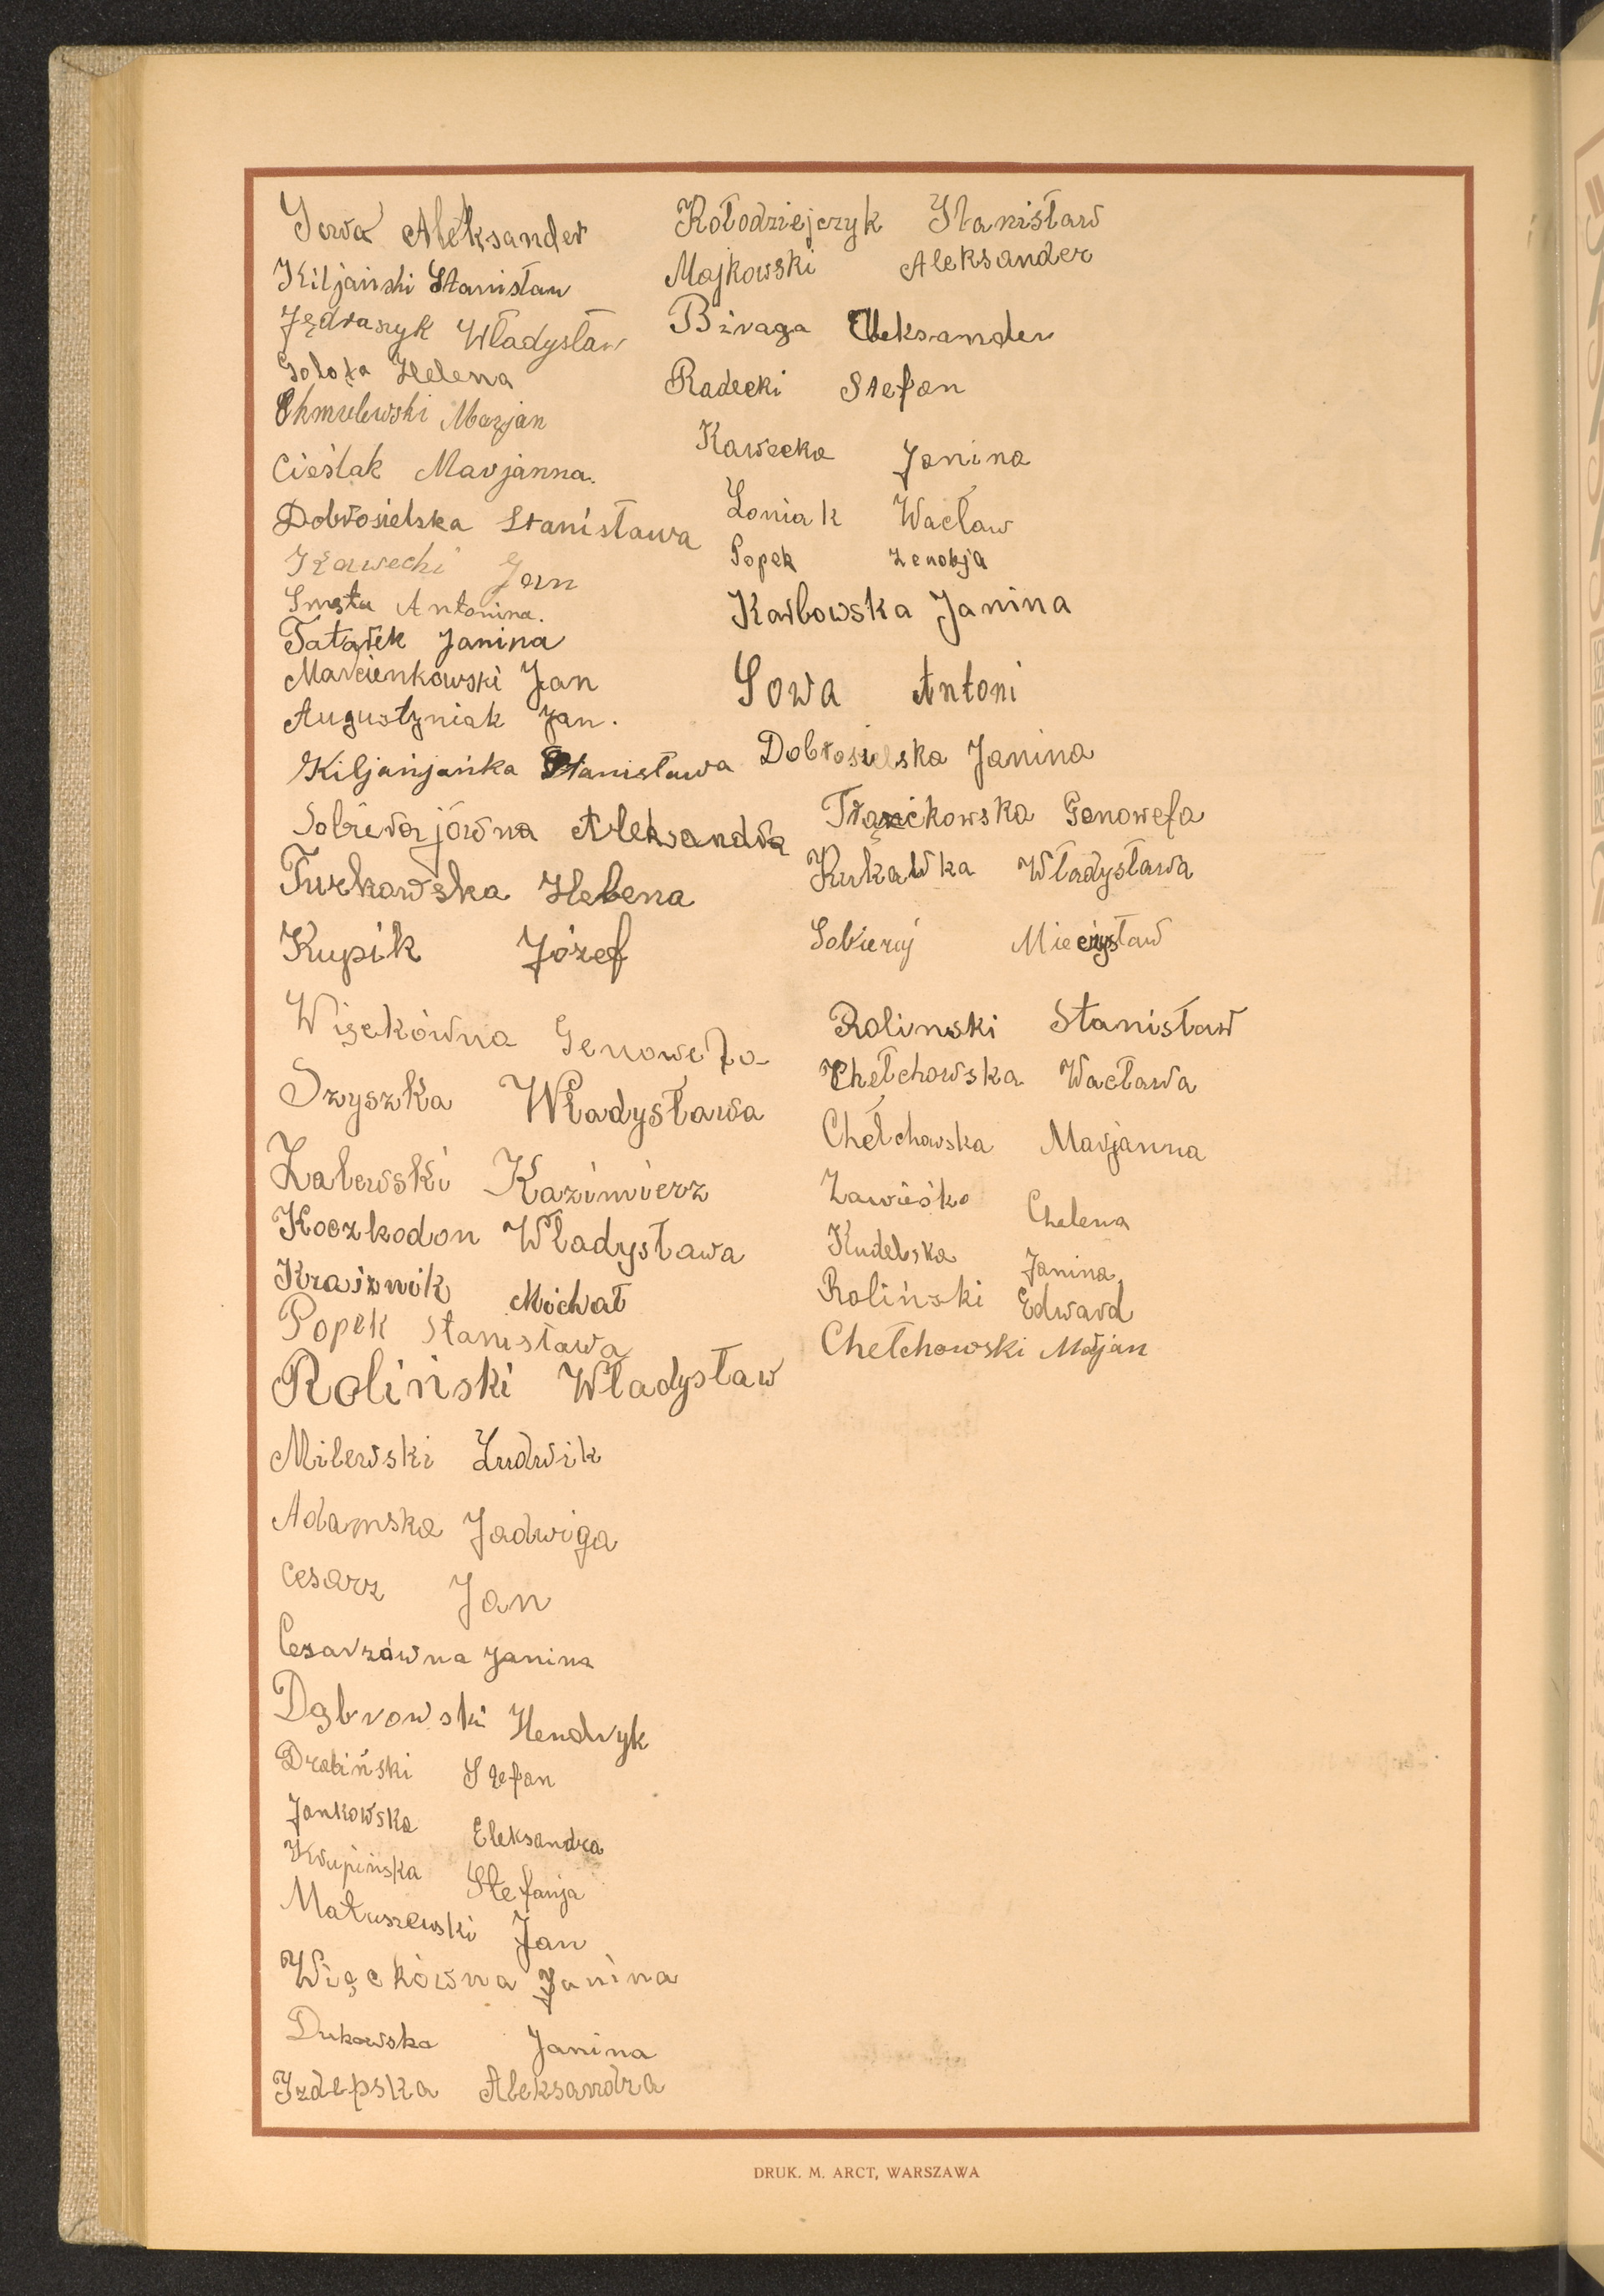 Sowa Aleksander
Kiljański Stanisław
Jędraszyk Władysław
Gołota Helena
Chmielewski Marjan
Cieślak Marjanna.
Dobrosielska Stanisława
Jan
Antonina.
Tatarek Janina
Marcienkowski Jan
Augustyniak Jan.
Kiljanjanka Stanisława
Sobierajówna Aleksandra
Turkowska Helena
Kupik Józef
Więckówna Genowefa
Szyszka Władysława
Zalewski Kazimierz
Koczkodon Władysława
Kraiżwik Michał
Popek Stanisława
Roliński Władysław
Milewski Ludwik
Adamska Jadwiga
Cesarz Jan
Cesarzówna Janina
Dąbrowski Hendryk
Drabiński Stefan
Jankowska Eleksandra
Krupińska Stefanja
Matuszewski Jan
Więckówna Janina
Dukowska Janina
Izdepska Aleksandra
Kołodziejczyk Stanisław
Majkowski Aleksander
Bżraga Eleksander
Radecki Stefan
Kawecka Janina
Łoniak Wacław
Popek Zenobja
Karbowska Janina
Sowa Antoni
Dobrosielska Janina
Genowefa
Kukawka Władysława
Sobieraj Mieczysław
Rolinski Stanisław
Chełchowska Wacława
Chełchowska Marjanna
Zawiśko Chelena
Kudelska Janina
Roliński Edward
Chełchowski Marjan
DRUK. M. ARCT, WARSZAWA